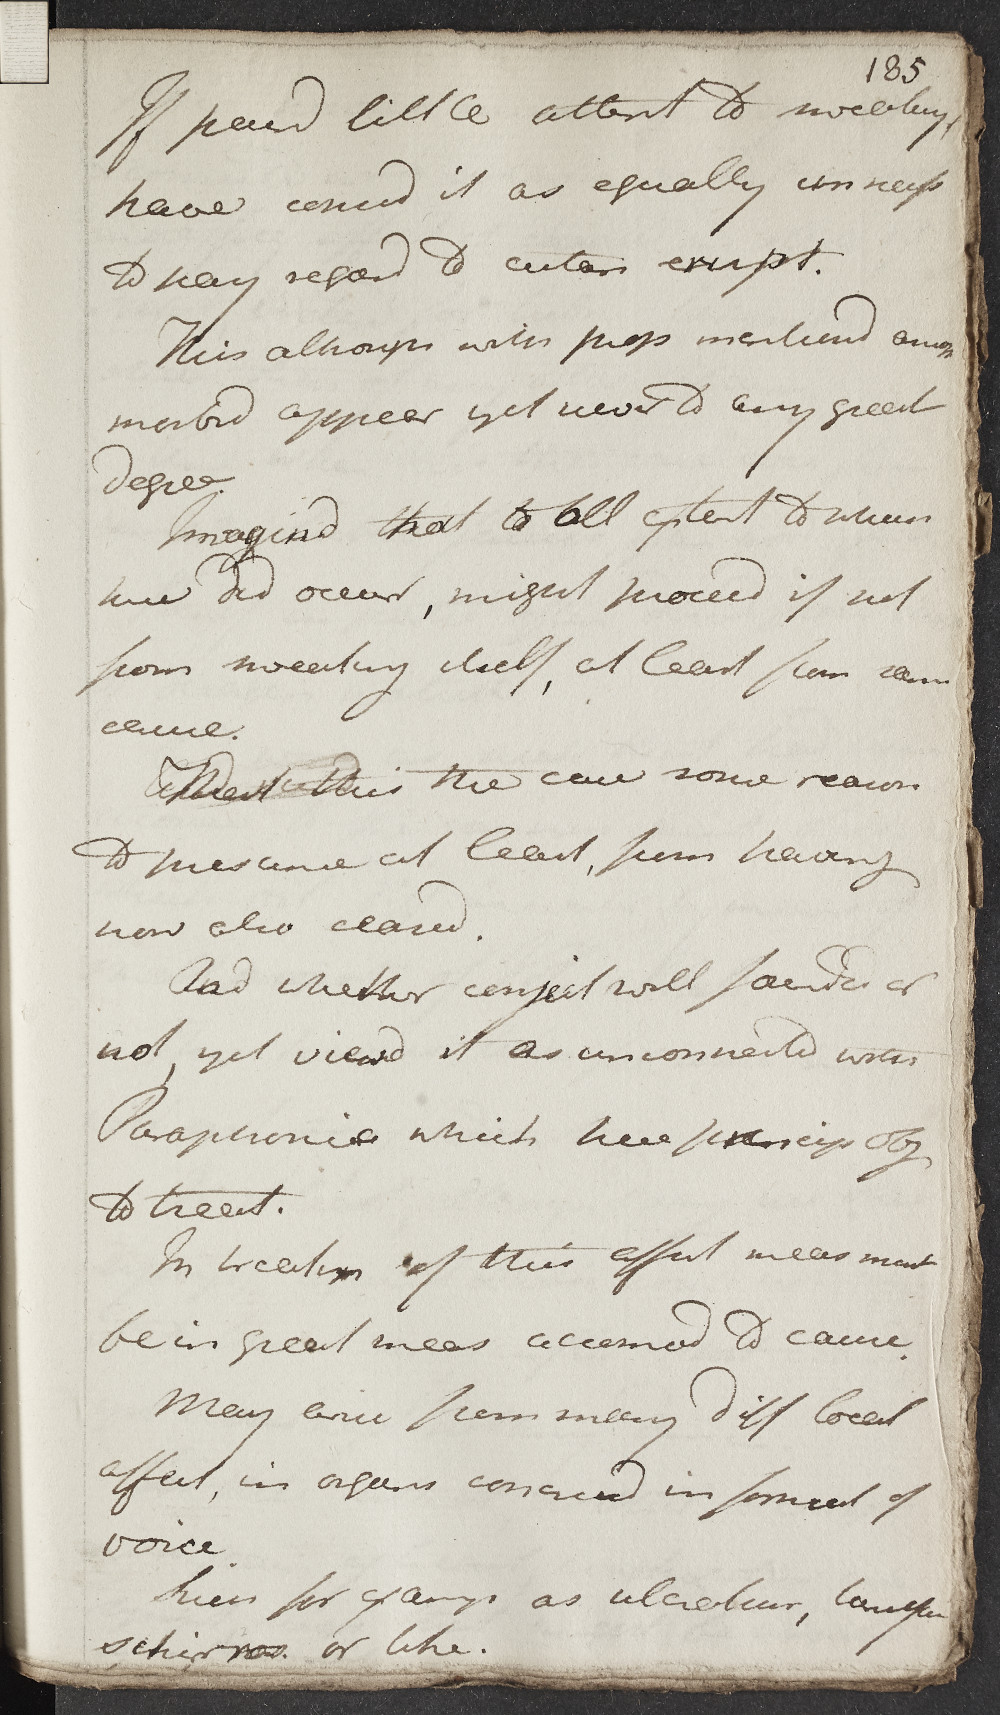 185
If paid little attent to sweating,
have consid it as equally unnecess
to pay regard to cutan erupt.
This although with props mentiond among
morbid appear yet never to any great
degree.
Imagind that to all extent to which
here did occur, might proceed if not
from sweating itself, at least from same
cause.
That this the case some reason
to presume at least, from having
now also ceased.
And whether conject well founded or
not, yet viewd it as unconnected with
Paraphonia which here princip obj
to treat.
In treatm of this affect meas must
be in great meas accomod to cause.
May arise from many diff local
affect, in organs concernd in format of
voice
Hien for examp as ulceration,
schirros. or like.